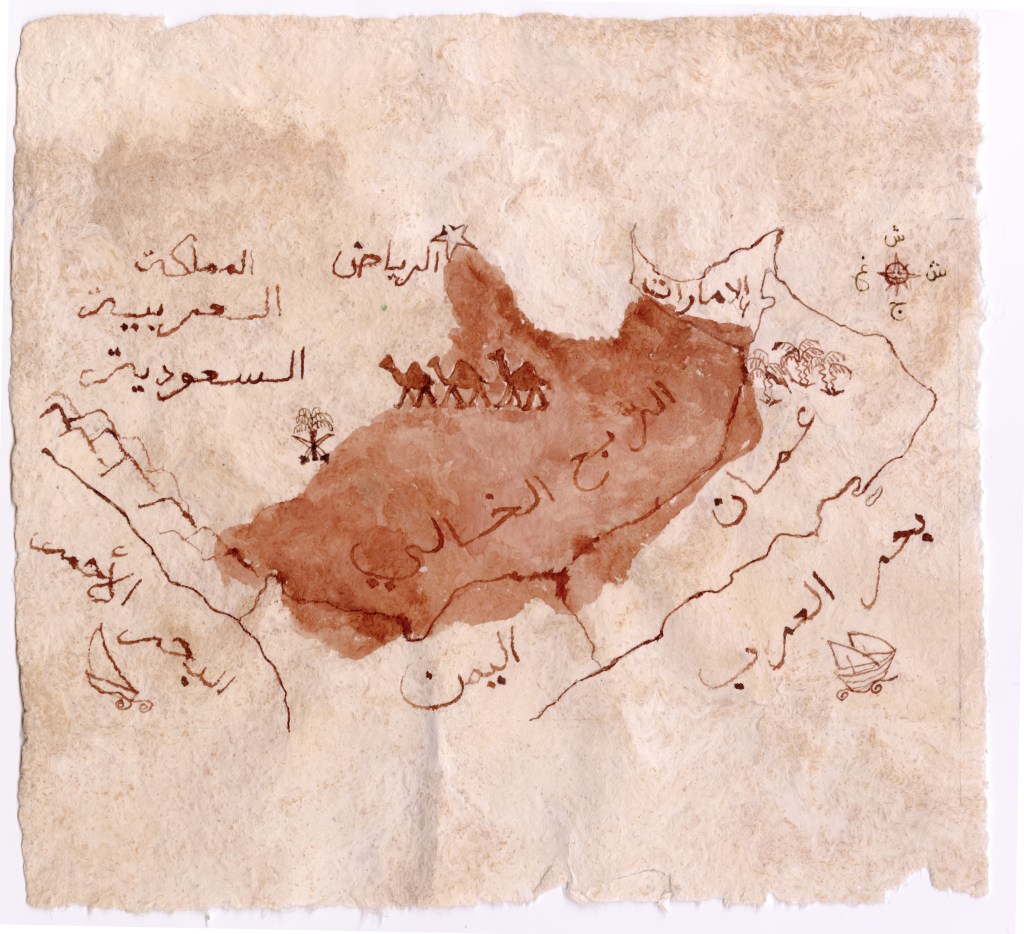 ش
المملكة
الرياض
غ
ش
العربية
الإمارات
ج
السعودية
الربع الخالي
عمان
البحر الأحمر
بحر العرب
اليمن